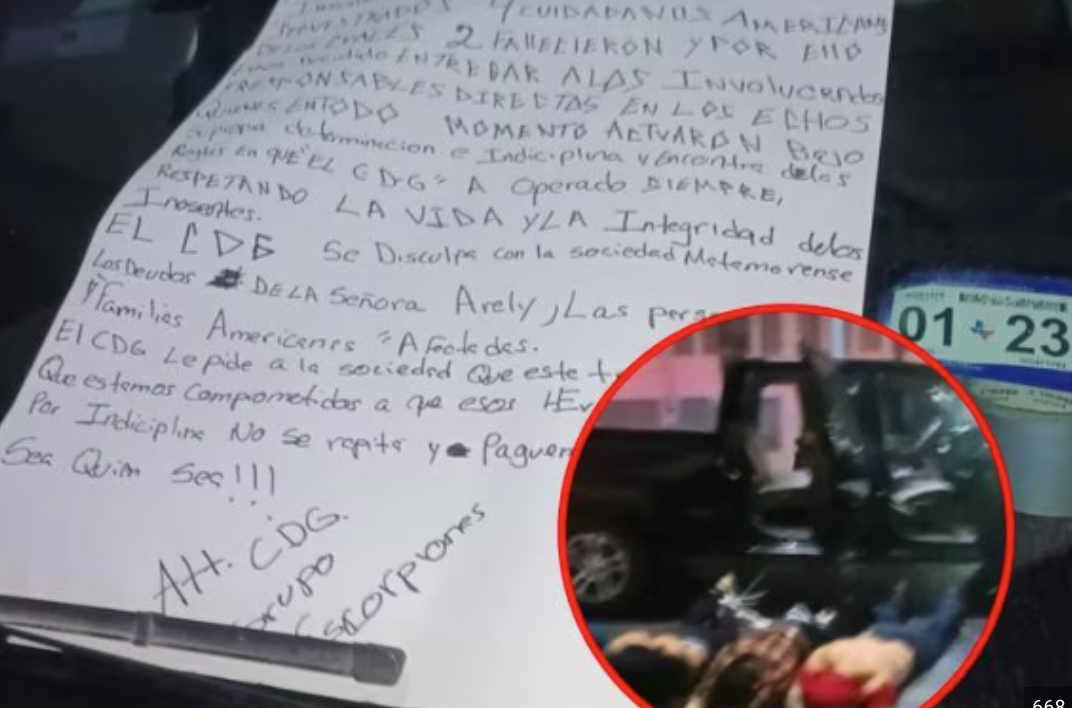 4 CUIDADANOS AMERICANOS
2 FALLECIERON Y POR ELLO
ENTREGAR ALAS INVOLUCRADOS
RESPONSABLES DIRECTOS EN LOS ECHOS
QUIENES ENTODO MOMENTO ACTUARON BAJO
determinacion e Indiciplina y Encontra delas
Reglas En QUE "EL CDG" A Operado SIEMPRE,
RESPETANDO LA VIDA Y LA Integridad delos
Inosentes.
EL CDG Se Disculpa con la sociedad Matamorense
Los Deudos DE LA Señora Arely, Las pers
y Familias Americanas "Afectadas.
El CDG Le pide a la sociedad Que este t
Que estamos Comprometidos a que esos
Por Indiciplina No Se repita y Paguen
Sea Quim Sea!!!
Att. CDG.
Grupo
Escorpiones
01 23
668